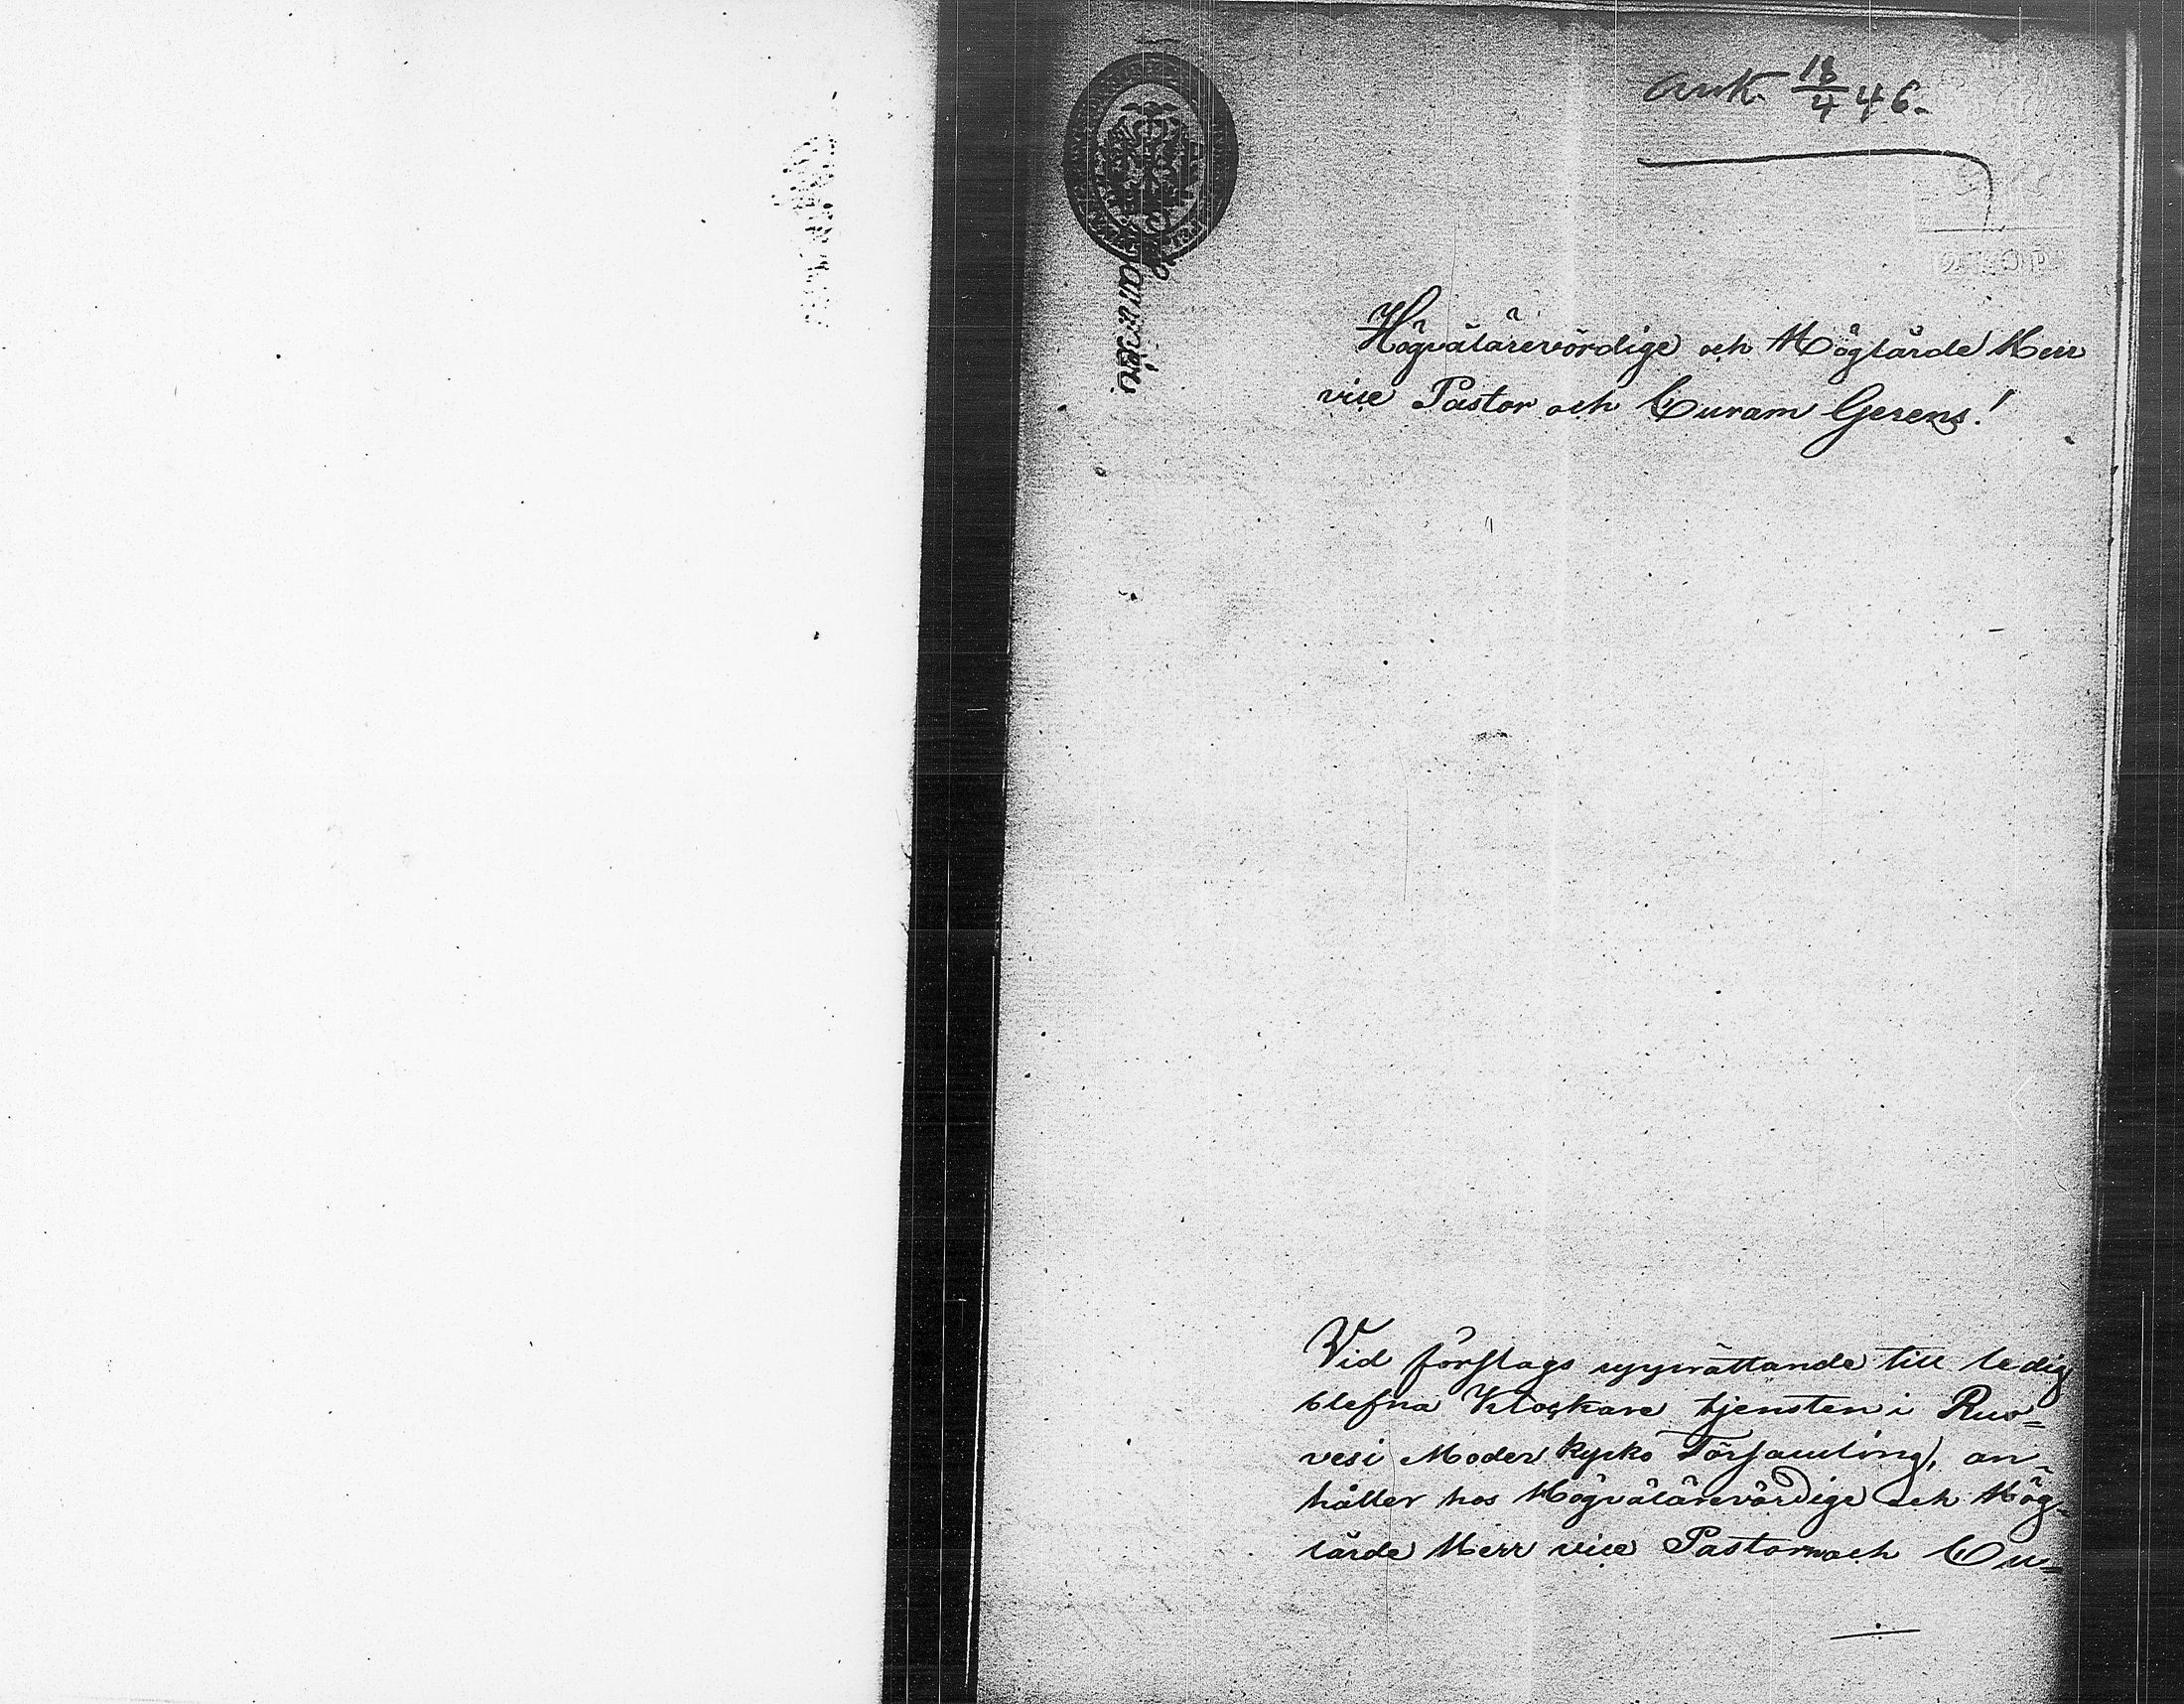 ank. 18/4 46.
Högvälärevördige och Höglärde Herr
vice Pastor och Curam Gerens!
Vid förslags upprättande till ledig
blefna Klockare tjensten i Ruo=
vesi Moder kyrko Församling, an
håller hos Högvälärevördige och Hög=
lärde Herr vice Pastorn och Cu=